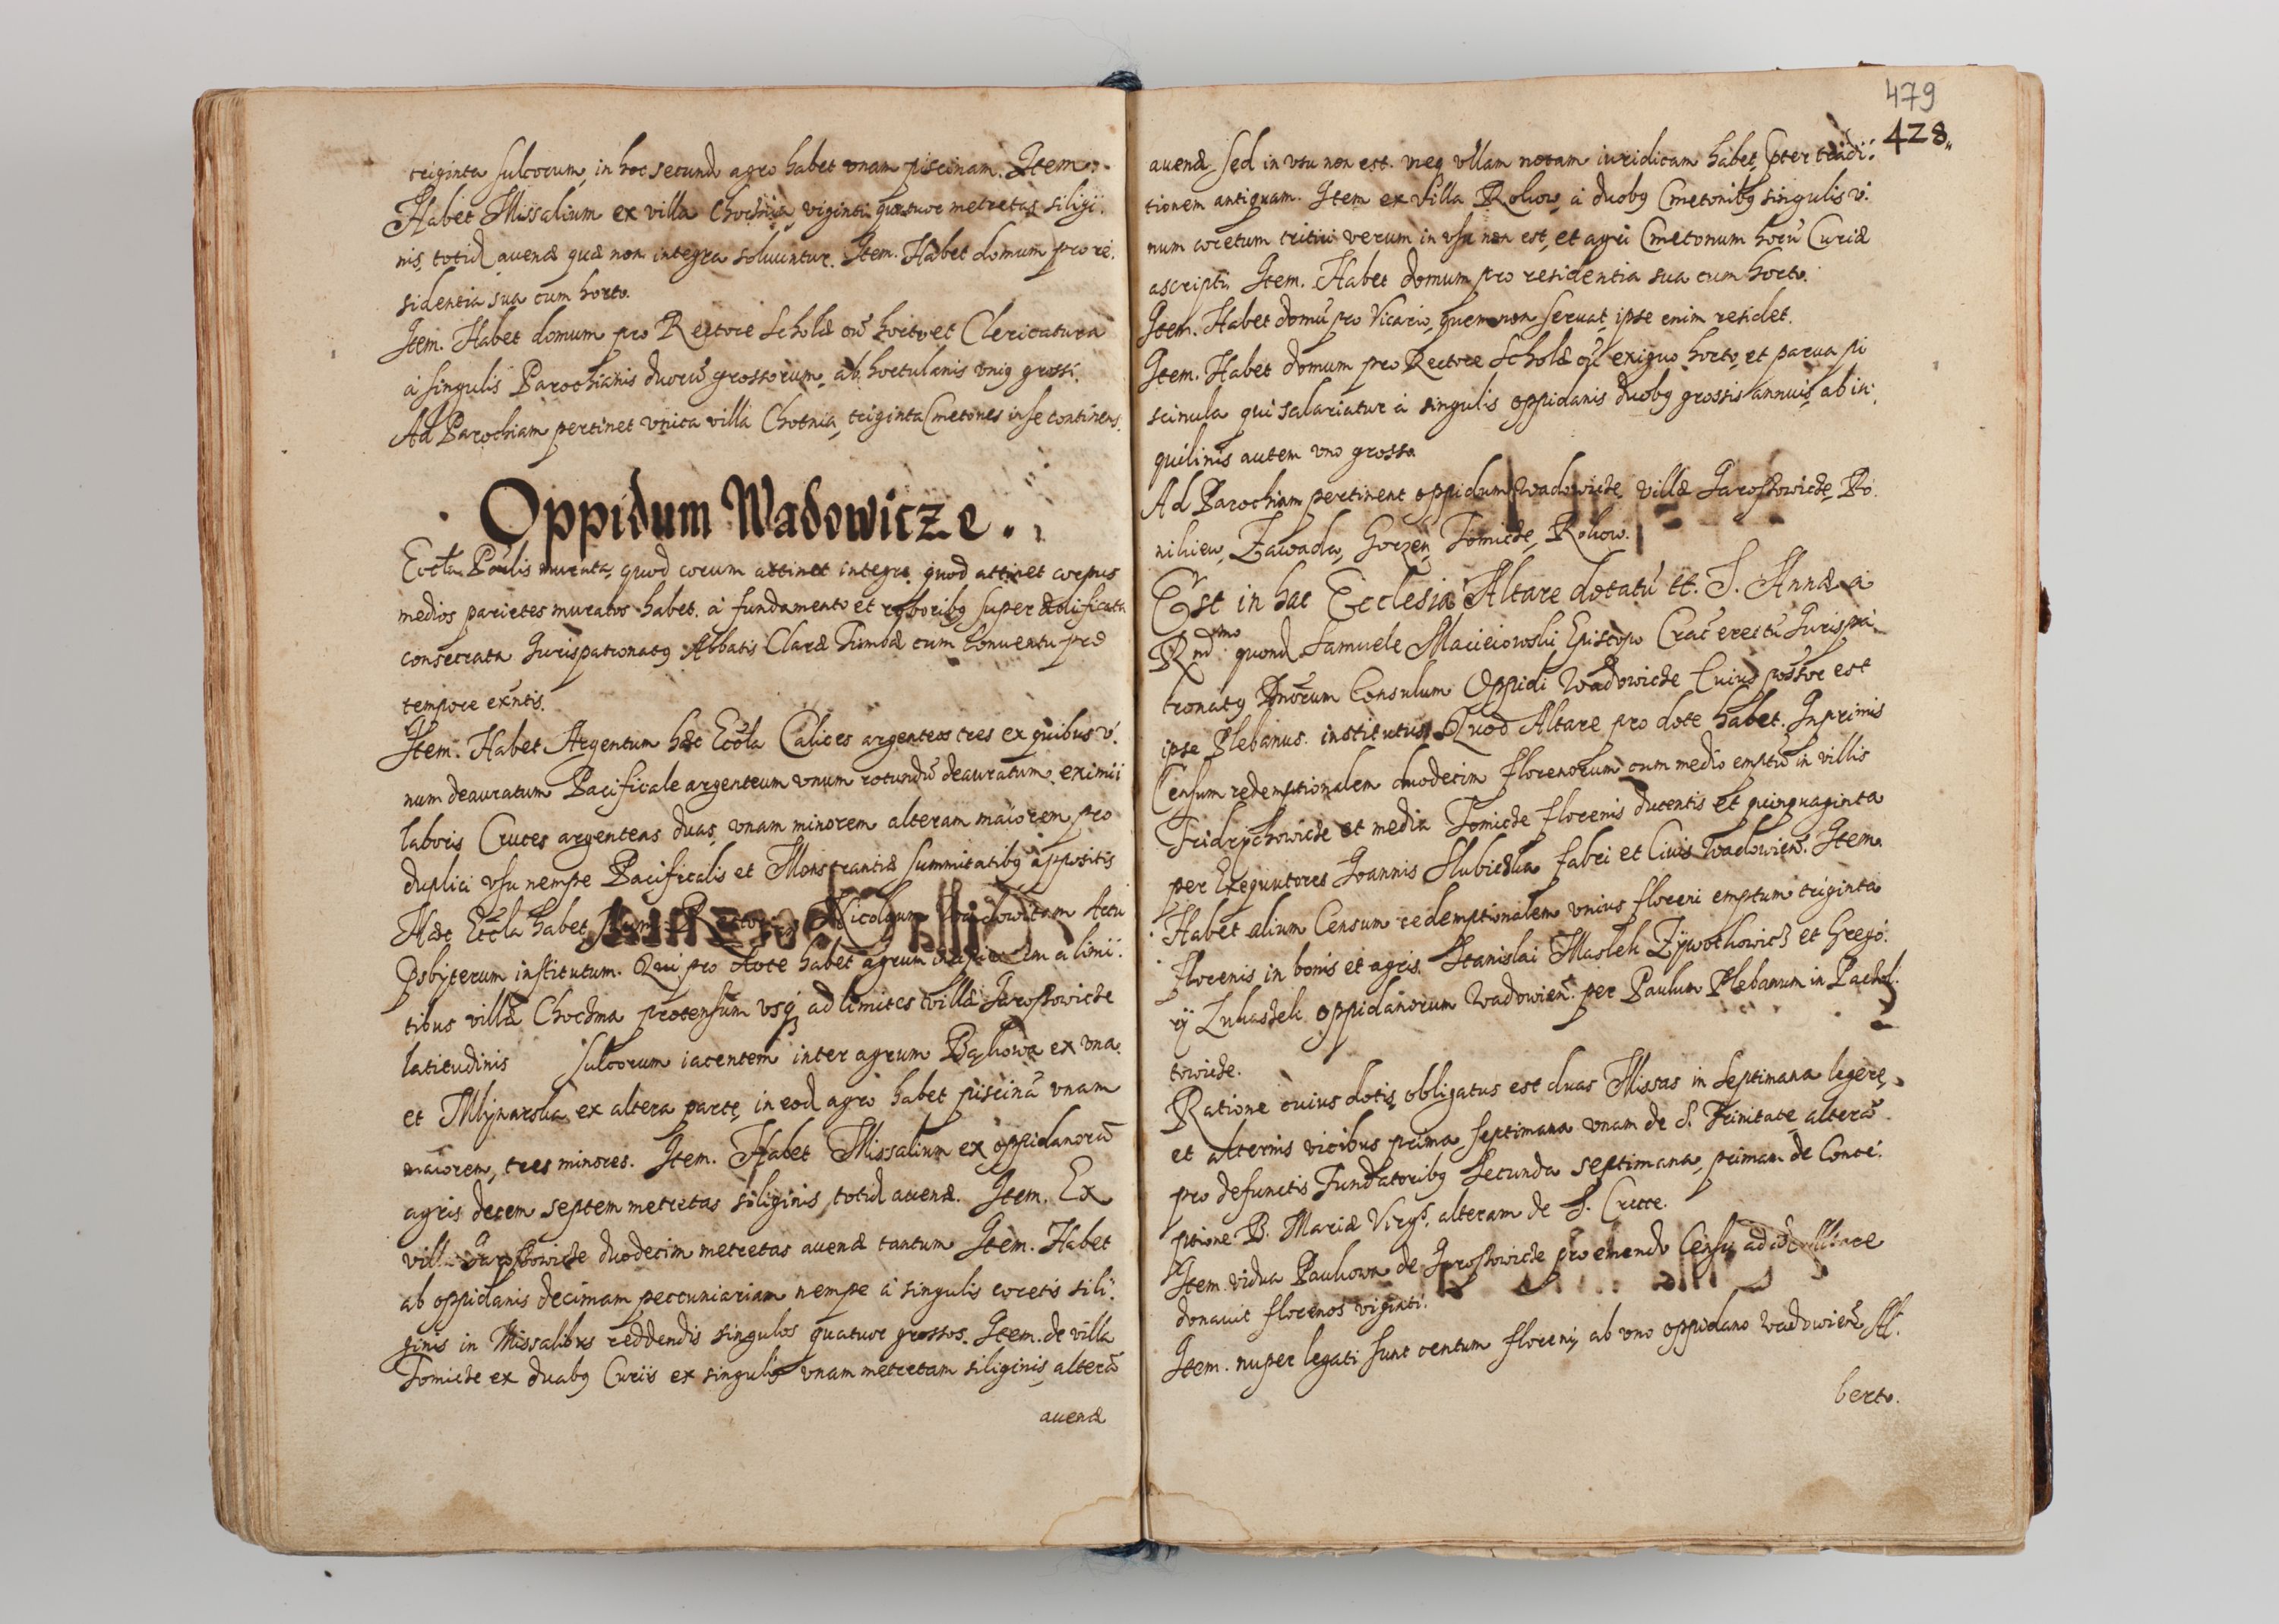 triginta sulcorum, in hoc secund agro habet vnam piscinam. Item.
Habet Missalium ex villa Chocnia, viginti quatuor metretas siligi:
nis, totid auenæ quæ non integra soluuntur. Item. Habet domum pro re:
sidentia sua cum horto.
Item. Habet domum pro Rectore Scholæ cū horto et Clericatura
à singulis Parochianis duorū grossorum, ab hortulanis vniq grossi.
Ad Parochiam pertinet vnica villa Chocnia, triginta Cmetones in se continens.
Oppidum Wadowicze.
Eccla Paulis murata, quod corum attinet integre, quod attinet corpus
medios parietes muratos habet. à fundamento et roboribq superædificata
consecrata Jurispatronatq Abbatis Claræ Tumbæ cum Conuentu pro
tempore exntis.
Item. Habet Argentum hæc Eccla Calices argenteos tres ex quibus v:
num deauratum Pacificale argenteum vnum rotundū deauratum eximii
laboris Cruces argenteas duas, vnam minorem alteram maiorem, pro
duplici vsu nempe Pacificalis et Monstrantiæ summitatibq appositis
Hæc Eccla habet Nicolaum Actu
Psbyterum institutum. Qui pro dote habet agrum a limi:
tibus villæ Choczna protensum vsq ad limites villæ Jaroszowicze
latitudinis sulcorum iacentem inter agrum Bąkowa ex vna.
et Mlynarska ex altera parte, in eod agro habet piscinā vnam
maiorem, tres minores. Item. Habet Missalium ex oppidanorū
agris decem septem metretas siliginis, totid auenæ. Item. Ex
villa Jaroszowicze duodecim metretas auenæ tantum Item. Habet
ab oppidanis decimam peccuniariam nempe à singulis coretis sili:
ginis in Missalibus reddendis singulos quatuor grossos. Item. de villa
Tomicze ex duabq Curiis ex singulis vnam metretam siliginis, alterā
auenæ
479
428
auenæ sed in vsu non est. neq vllam notam iuridicam habet, pter tradi:
tionem antiquam. Item ex villa Rokow, à duobq Cmetonibq singulis v:
num coretum tritici verum in vsu non est, et agri Cmetonum horū Curiæ
ascripti, Item. Habet domum pro residentia sua cum horto.
Item. Habet domū pro Vicario, quem non seruat, ipse enim residet.
Item. Habet domum pro Rectore Scholæ cū exiguo horto, et parua pi
scinula qui salariatur à singulis oppidanis duobq grossis annuis, ab in:
quilinis autem vno grosso
Ad Parochiam pertinent oppidum Wadowicze, villæ Jaroszowicze, Po:
nikiew, Zawada, Gorzen, Tomicze, Rokow.
Est in hac Ecclesia Altare dotatū tt. S. Annæ à
Rndmo quond Samuele Macieiowski Episcopo Crac erectū Jurispa:
tronatq Dnorum Consulum Oppidi Wadowicze Cuius posśor est
ipse Plebanus institutus. Quod Altare pro dote habet. Inprimis
Censum redemptionalem duodecim florenorum cum medio emptū in villis
Fridrychowicze et media Tomicze florenis ducentis et quinquaginta
per Exequutores Joannis Slubiczka fabri et Ciuis Wadowien. Item.
Habet alium Censum redemptionalem vnius floreni emptum triginta
florenis in bonis et agris. Stanislai Maslek Zÿwothowicz et Grego:
rÿ Lukaszek oppidanorum Wadowien. per Paulum Plebanum in Pachol:
towicze.
Ratione cuius dotis, obligatus est duas Missas in Septimana legere,
et alternis vicibus prima septimana vnam de S. Trinitate alterā
pro defunctis Fundatoribq Secunda septimana, primam de Conce:
ptione B. Mariæ Virgs. alteram de S. Cruce.
Item. vidua Paukowa de Jaroszowicze pro emendo Censu ad id Altare
donauit florenos viginti.
Item. nuper legati sunt centum floreni, ab vno oppidano Wadowien Al:
berto.